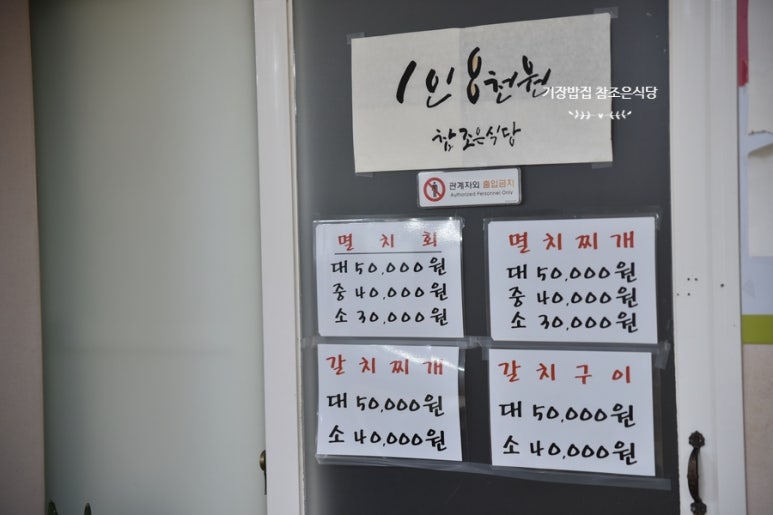 1인 8천원
참조은식당
기장밥집 참조은식당
관계자외 출입금지
Authorized Personnel Only
멸치회
대 50,000원
중 40,000원
소 30,000원
멸치찌개
대 50,000원
중 40,000원
소 30,000원
갈치찌개
대 50,000원
소 40,000원
갈치구이
대 50,000원
소 40,000원